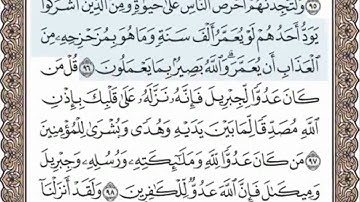 ٩٥ وَلَتَجِدَنَّهُمْ أَحْرَصَ النَّاسِ عَلَىٰ حَيَوٰةٍ وَمِنَ الَّذِينَ أَشْرَكُوا
يَوَدُّ أَحَدُهُمْ لَوْ يُعَمَّرُ أَلْفَ سَنَةٍ وَمَا هُوَ بِمُزَحْزِحِهِ مِنَ
الْعَذَابِ أَن يُعَمَّرَ ۗ وَاللَّهُ بَصِيرٌ بِمَا يَعْمَلُونَ ٩٦ قُلْ مَن
كَانَ عَدُوًّا لِّجِبْرِيلَ فَإِنَّهُ نَزَّلَهُ عَلَىٰ قَلْبِكَ بِإِذْنِ
اللَّهِ مُصَدِّقًا لِّمَا بَيْنَ يَدَيْهِ وَهُدًى وَبُشْرَىٰ لِلْمُؤْمِنِينَ
٩٧ مَن كَانَ عَدُوًّا لِّلَّهِ وَمَلَٰٓئِكَتِهِ وَرُسُلِهِ وَجِبْرِيلَ
وَمِيكَىٰلَ فَإِنَّ اللَّهَ عَدُوٌّ لِّلْكَٰفِرِينَ ٩٨ وَلَقَدْ أَنزَلْنَا